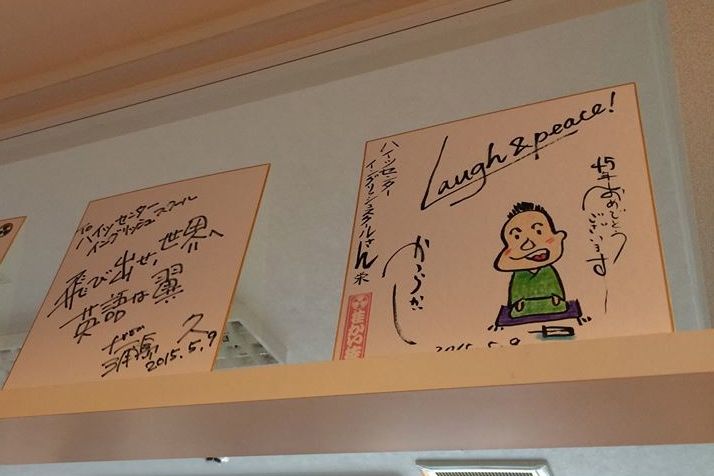 to
ハイッセンター
イングリッシュスクール
飛び出せ、世界へ
英語は翼
久
2015.5.9
Laugh & peace!
ハイッセンター
イングリッシュスクルさん江
45年おめでとう
ございます
2015.5.9